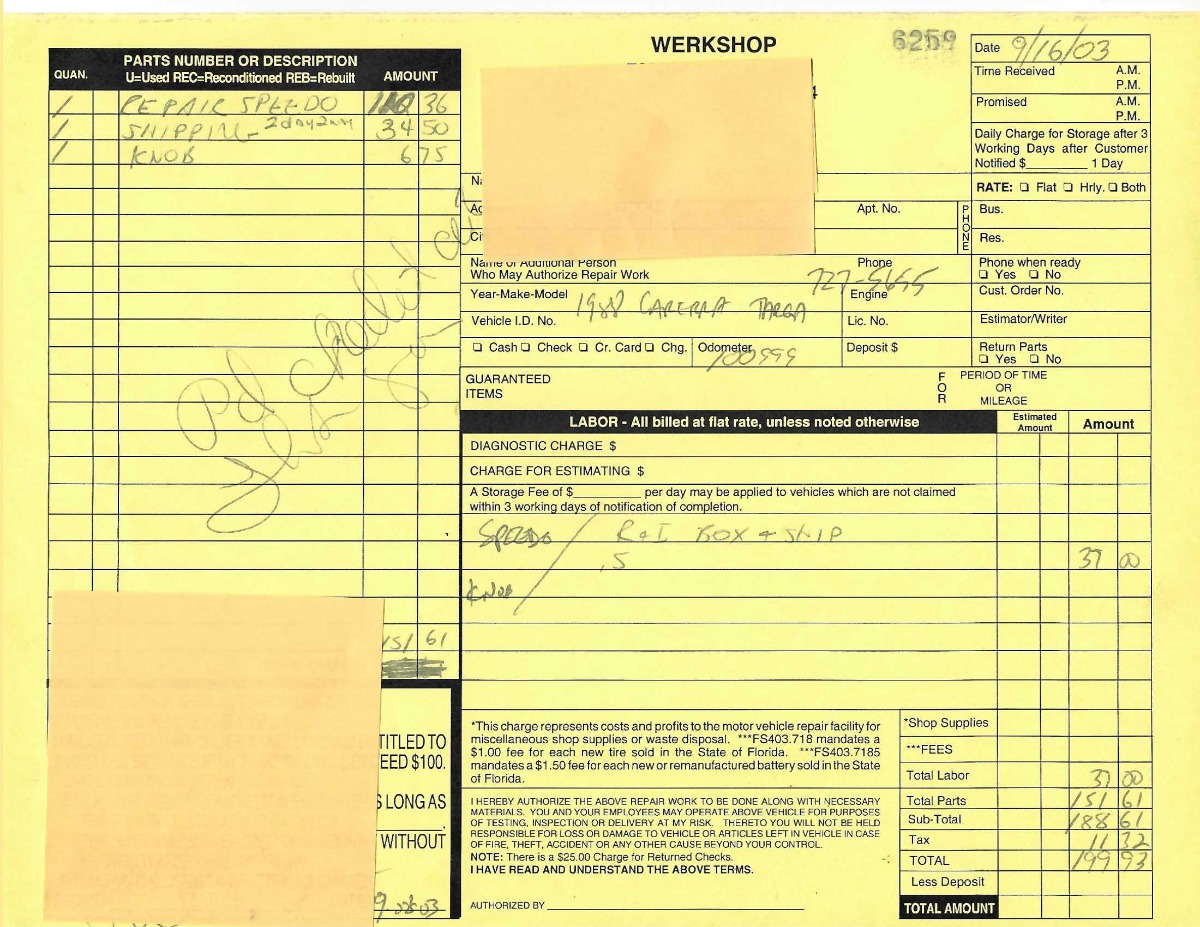 WERKSHOP
6259
Date 9/16/03
Time Received A.M.
P.M.
Promised A.M.
P.M.
Daily Charge for Storage after 3
Working Days after Customer
Notified $________ 1 Day
RATE: ☐ Flat ☐ Hrly. ☐ Both
QUAN. PARTS NUMBER OR DESCRIPTION AMOUNT
U=Used REC=Reconditioned REB=Rebuilt
1 REPAIR SPEEDO 110 36
1 SHIPPING 34 50
1 KNOB 6 75
Pd
151 61
TITLED TO
EED $100.
S LONG AS
WITHOUT
Apt. No.
PHONE
Bus.
Res.
Name of Additional Person
Who May Authorize Repair Work
Phone
727-5655
Phone when ready
☐ Yes ☐ No
Year-Make-Model 1988 CARERRA TARGA
Engine
Cust. Order No.
Vehicle I.D. No.
Lic. No.
Estimator/Writer
☐ Cash ☐ Check ☐ Cr. Card ☐ Chg.
Odometer 100999
Deposit $
Return Parts
☐ Yes ☐ No
GUARANTEED
ITEMS
FOR
PERIOD OF TIME
OR
MILEAGE
LABOR - All billed at flat rate, unless noted otherwise
Estimated
Amount
Amount
DIAGNOSTIC CHARGE $
CHARGE FOR ESTIMATING $
A Storage Fee of $__________ per day may be applied to vehicles which are not claimed
within 3 working days of notification of completion.
SPEEDO / R+I BOX + SHIP
.5 37 00
KNOB
*This charge represents costs and profits to the motor vehicle repair facility for
miscellaneous shop supplies or waste disposal. ***FS403.718 mandates a
$1.00 fee for each new tire sold in the State of Florida. ***FS403.7185
mandates a $1.50 fee for each new or remanufactured battery sold in the State
of Florida.
I HEREBY AUTHORIZE THE ABOVE REPAIR WORK TO BE DONE ALONG WITH NECESSARY
MATERIALS. YOU AND YOUR EMPLOYEES MAY OPERATE ABOVE VEHICLE FOR PURPOSES
OF TESTING, INSPECTION OR DELIVERY AT MY RISK. THERETO YOU WILL NOT BE HELD
RESPONSIBLE FOR LOSS OR DAMAGE TO VEHICLE OR ARTICLES LEFT IN VEHICLE IN CASE
OF FIRE, THEFT, ACCIDENT OR ANY OTHER CAUSE BEYOND YOUR CONTROL.
NOTE: There is a $25.00 Charge for Returned Checks.
I HAVE READ AND UNDERSTAND THE ABOVE TERMS.
AUTHORIZED BY
*Shop Supplies
***FEES
Total Labor 37 00
Total Parts 151 61
Sub-Total 188 61
Tax 11 32
TOTAL 199 93
Less Deposit
TOTAL AMOUNT